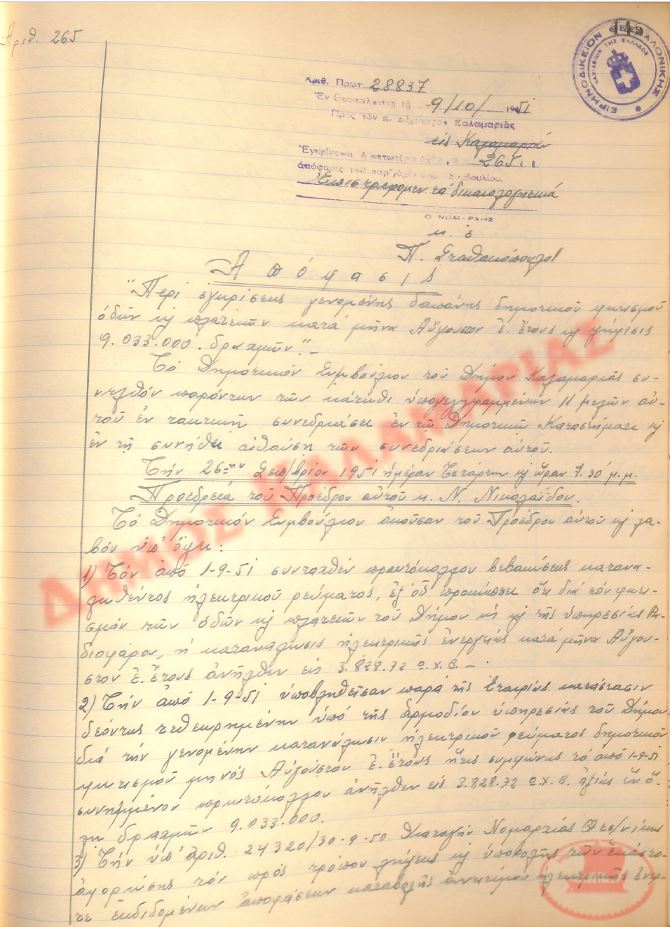 Αριθ. 265
ΕΙΡΗΝΟΔΙΚΕΙΟΝ ΘΕΣΣΑΛΟΝΙΚΗΣ
ΒΑΣΙΛΕΙΟΝ ΤΗΣ ΕΛΛΑΔΟΣ
Αριθ. Πρωτ. 28837
Ἐν Θεσσαλονίκη τῆ 9/10/1951
Πρὸς τὸν κ. Δήμαρχον Καλαμαριᾶς
εἰς Καλαμαριάν
Ἐγκρίνεται ἡ 265
ἀπόφασις τοῦ παρ' ὑμῖν Συμβουλίου.
Ἐπιστρέφομεν τὰ δικαιολογητικά
Ο ΝΟΜΑΡΧΗΣ
Π. Σταθακόπουλος
Ἀπόφασις
"Περὶ ἐγκρίσεως γενομένης δαπάνης δημοτικοῦ φωτισμοῦ
ὁδῶν κ πλατειῶν κατὰ μῆνα Αὔγουστον ἐ. ἔτους κ ψήφισις
9.033.000 δραχμῶν."-
Τὸ Δημοτικὸν Συμβούλιον τοῦ Δήμου Καλαμαριᾶς συ-
νελθὸν παρόντων τῶν κάτωθι ὑπογεγραμμένων 11 μελῶν αὐ-
τοῦ ἐν τακτικῇ συνεδριάσει ἐν τῷ Δημοτικῷ Καταστήματι κ
ἐν τῇ συνήθει αἰθούσῃ τῶν συνεδριάσεων αὐτοῦ.
Τὴν 26ην Σεπ/βρίου 1951 ἡμέραν Τετάρτην κ ὥραν 7.30 μ.μ.
Προεδρεία τοῦ Προέδρου αὐτοῦ κ. Ν. Νικολαΐδου.
Τὸ Δημοτικὸν Συμβούλιον ἀκοῦσαν τοῦ Προέδρου αὐτοῦ κ λα-
βὸν ὑπ' ὄψει:
1) Τὸν ἀπὸ 1-9-51 συνταχθὲν πρωτόκολλον βεβαιώσεως κατανα-
λωθέντος ἠλεκτρικοῦ ρεύματος, ἐξ οὗ προκύπτει ὅτι διὰ τὸν φωτι-
σμὸν τῶν ὁδῶν κ πλατειῶν τοῦ Δήμου κ κ τῆς ὑπηρεσίας Ρα-
διοφάρου, ἡ κατανάλωσις ἠλεκτρικῆς ἐνεργείας κατὰ μῆνα Αὔγου-
στον ἐ. ἔτους ἀνῆλθεν εἰς 3.828.72 ὠ.χ.β. -
2) Τὴν ἀπὸ 1-9-51 ὑποβληθεῖσαν παρὰ τῆς Ἑταιρίας κατάστασιν
δεόντως τεθεωρημένην ὑπὸ τῆς ἁρμοδίου ὑπηρεσίας τοῦ Δήμου
διὰ τὴν γενομένην κατανάλωσιν ἠλεκτρικοῦ ρεύματος δημοτικοῦ
φωτισμοῦ μηνὸς Αὐγούστου ἐ. ἔτους ἥτις συμφώνως τὸ ἀπὸ 1-9-51
συνημμένον πρωτόκολλον ἀνῆλθεν εἰς 3.828.72 ὠ.χ.β. ἀξίας ἐν ὅ-
λῳ δραχμῶν 9.033.000.
3) Τὴν ὑπ' ἀριθ. 24320/30-9-50 διαταγὴν Νομαρχίας Θεσ/νίκης
ἀφορώσης τὸν πρὸς τρόπον λήψεως κ ὑποβολῆς τῶν ἑκάστο-
τε ἐκδιδομένων ἀποφάσεων καταβολῆς ἀντιτίμου ἠλεκτρικῆς ἐνερ-
ΔΗΜΟΣ ΚΑΛΑΜΑΡΙΑΣ